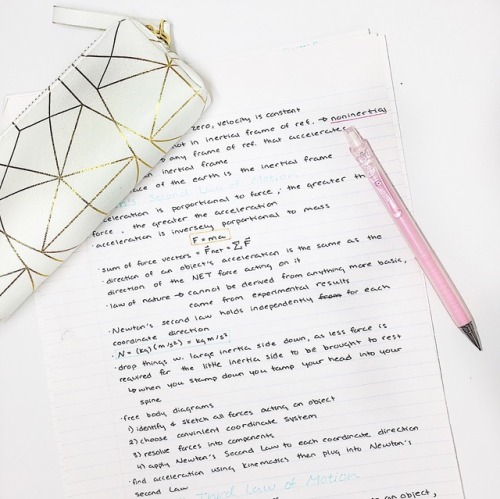 zero, velocity is constant
not in inertial frame of ref. → noninertial
any frame of ref. that accelerates
inertial frame
of the earth is the inertial frame
Second Law of Motion
acceleration is porportional to force, the greater the
force, the greater the acceleration
·acceleration is inversely porportional to mass
F = ma
·sum of force vectors = F⃗net = ΣF⃗
·direction of an object's acceleration is the same as the
direction of the NET force acting on it
·law of nature → cannot be derived from anything more basic,
came from experimental results
·Newton's second law holds independently for each
coordinate direction
·N = (kg)(m/s²) = kg m/s²
·drop things w. large inertia side down, as less force is
required for the little inertia side to be brought to rest
↳ when you stamp down you tamp your head into your
spine
·free body diagrams
1) identify & sketch all forces acting on object
2) choose convenient coordinate system
3) resolve forces into components
4) apply Newton's Second Law to each coordinate direction
·find acceleration using kinematics then plug into Newton's
second Law
Third Law of Motion
an object,